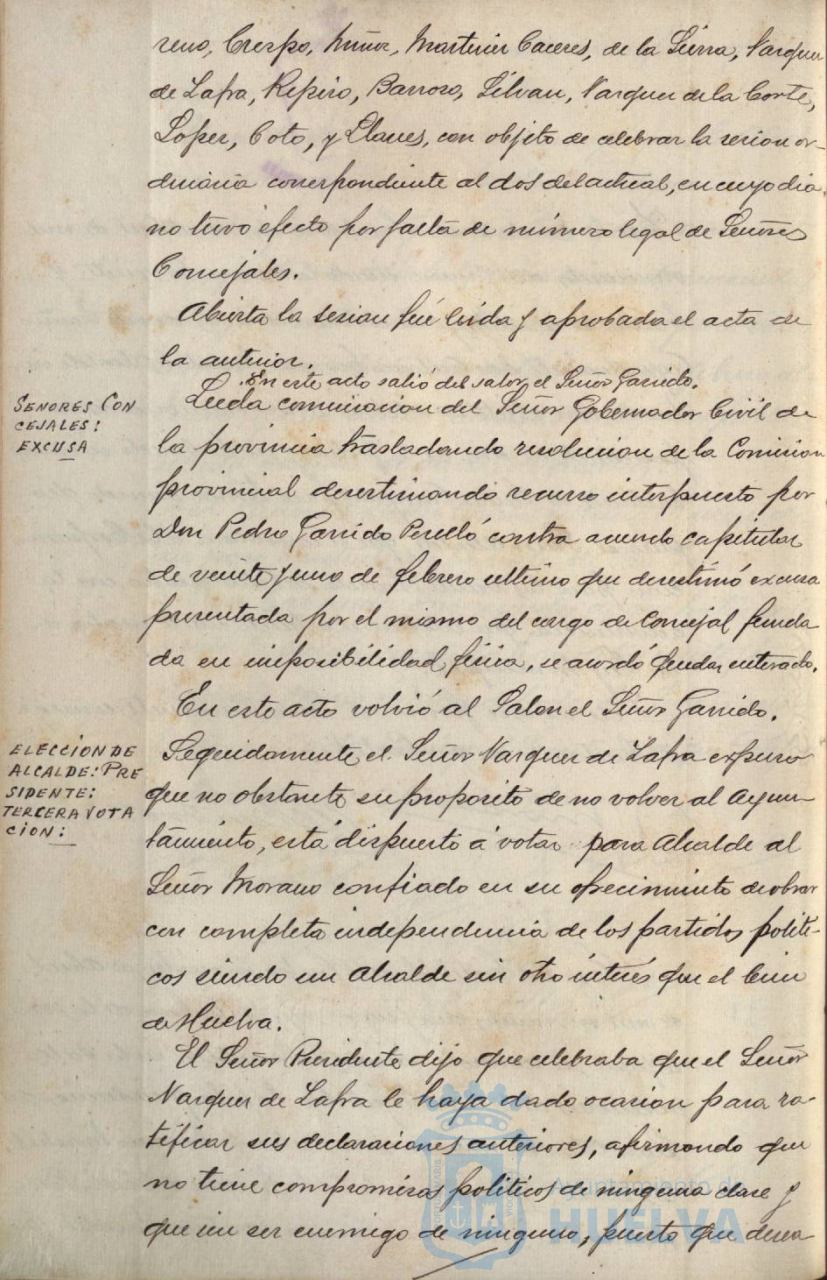 reno, Crespo, Muñoz, Martinez Caceres, de la Sierra, Vazquez
de Zafra, Repiso, Barroso, Silvan, Vazquez de la Corte,
Lopez, Coto, y Llanes, con objeto de celebrar la sesion or-
dinaria correspondiente al dos del actual, en cuyo dia
no tuvo efecto por falta de número legal de Señores
Concejales.
Abierta la sesion fué leida y aprobada el acta de
la anterior.
En este acto salió del salon el Señor Garrido.
SEÑORES CON
CEJALES:
EXCUSA
Leida comunicacion del Señor Gobernador Civil de
la provincia trasladando resolucion de la Comision
provincial desestimando recurso interpuesto por
Don Pedro Garrido Perelló contra acuerdo capitular
de veinte y uno de febrero ultimo que desestimó excusa
presentada por el mismo del cargo de Concejal funda
da en imposibilidad fisica, se acordó quedar enterado.
En este acto volvió al Salon el Señor Garrido.
ELECCION DE
ALCALDE: PRE
SIDENTE:
TERCERA VOTA
CION:
Seguidamente el Señor Vazquez de Zafra expuso
que no obstante su proposito de no volver al Ayun-
tamiento, está dispuesto á votar para Alcalde al
Señor Morano confiado en su ofrecimiento de obrar
con completa independencia de los partidos politi-
cos siendo un Alcalde sin otro interés que el bien
de Huelva.
El Señor Presidente dijo que celebraba que el Señor
Vazquez de Zafra le haya dado ocasion para ra-
tificar sus declaraciones anteriores, afirmando que
no tiene compromisos politicos de ninguna clase y
que sin ser enemigo de ninguno, puesto que desea
Ayuntamiento de
HUELVA